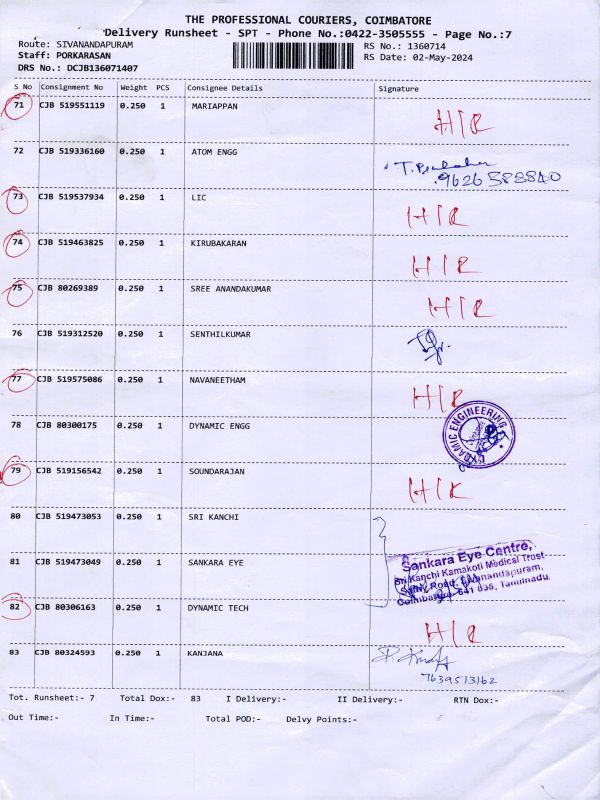 THE PROFESSIONAL COURIERS, COIMBATORE
Delivery Runsheet - SPT - Phone No.:0422-3505555 - Page No.:7
Route: SIVANANDAPURAM RS No.: 1360714
Staff: PORKARASAN RS Date: 02-May-2024
DRS No.: DCJB136071407
S No Consignment No Weight PCS Consignee Details Signature
71 CJB 519551119 0.250 1 MARIAPPAN H/R
72 CJB 519336160 0.250 1 ATOM ENGG
9626388840
73 CJB 519537934 0.250 1 LIC H/R
74 CJB 519463825 0.250 1 KIRUBAKARAN H/R
75 CJB 80269389 0.250 1 SREE ANANDAKUMAR H/R
76 CJB 519312520 0.250 1 SENTHILKUMAR
77 CJB 519575086 0.250 1 NAVANEETHAM H/R
78 CJB 80300175 0.250 1 DYNAMIC ENGG
DYNAMIC ENGINEERING
79 CJB 519156542 0.250 1 SOUNDARAJAN H/R
80 CJB 519473053 0.250 1 SRI KANCHI
Sankara Eye Centre,
Sri Kanchi Kamakoti Medical Trust
81 CJB 519473049 0.250 1 SANKARA EYE
Sathy Road, Sivanandapuram,
Coimbatore - 641 035, Tamilnadu.
82 CJB 80306163 0.250 1 DYNAMIC TECH H/R
83 CJB 80324593 0.250 1 KANJANA
7639513162
Tot. Runsheet:- 7 Total Dox:- 83 I Delivery:- II Delivery:- RTN Dox:-
Out Time:- In Time:- Total POD:- Delvy Points:-